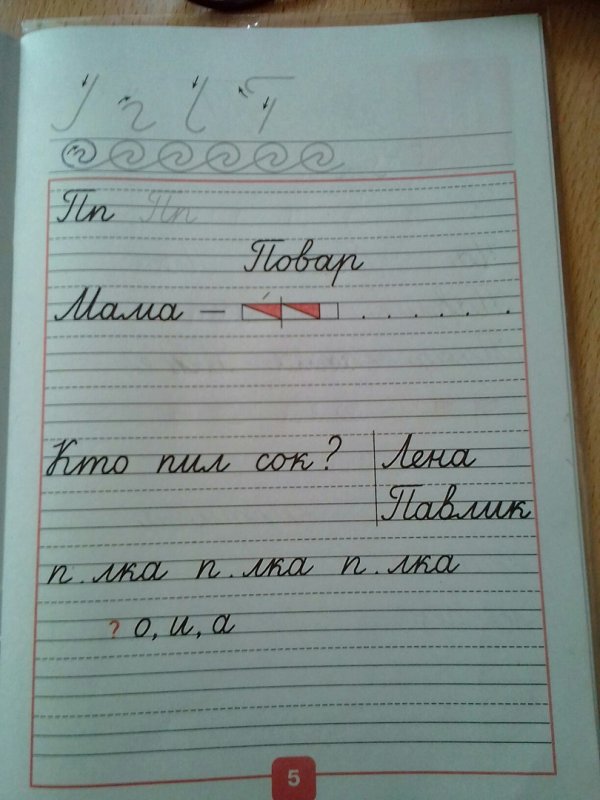 Пп Пп
Повар
Мама — . . . . . .
Кто пил сок? Лена
Павлик
п.лка п.лка п.лка
? о, и, а
5